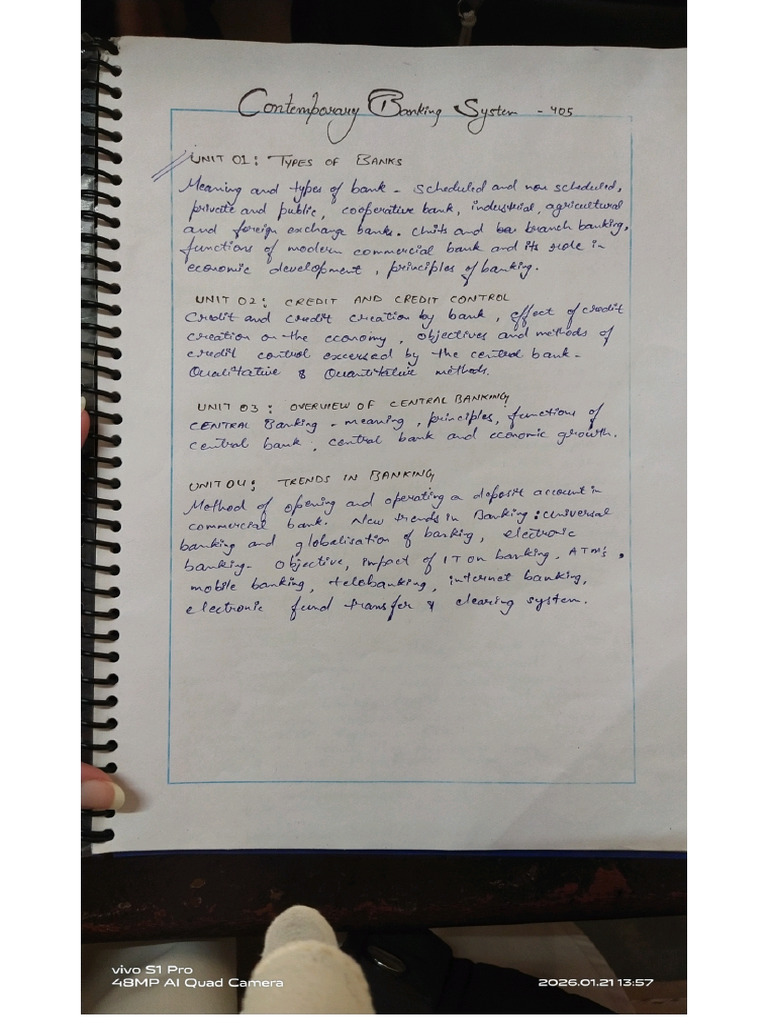 Contemporary Banking System - 405
UNIT 01: TYPES OF BANKS
Meaning and types of bank - scheduled and non scheduled,
private and public, cooperative bank, industrial, agricultural
and foreign exchange banks. Units and branch banking,
functions of modern commercial bank and its role in
economic development, principles of banking.
UNIT 02: CREDIT AND CREDIT CONTROL
Credit and credit creation by bank, effect of credit
creation on the economy, objectives and methods of
credit control excersed by the central bank -
Qualitative & Quantitative methods.
UNIT 03: OVERVIEW OF CENTRAL BANKING
CENTRAL Banking - meaning, principles, functions of
central bank, central bank and economic growth.
UNIT 04: TRENDS IN BANKING
Method of opening and operating a deposit account in
commercial bank. New trends in Banking: Universal
banking and globalisation of banking, electronic
banking - objective, impact of IT on banking, ATM's,
mobile banking, telobanking, internet banking,
electronic fund transfer & clearing system.
vivo S1 Pro
48MP AI Quad Camera
2026.01.21 13:57